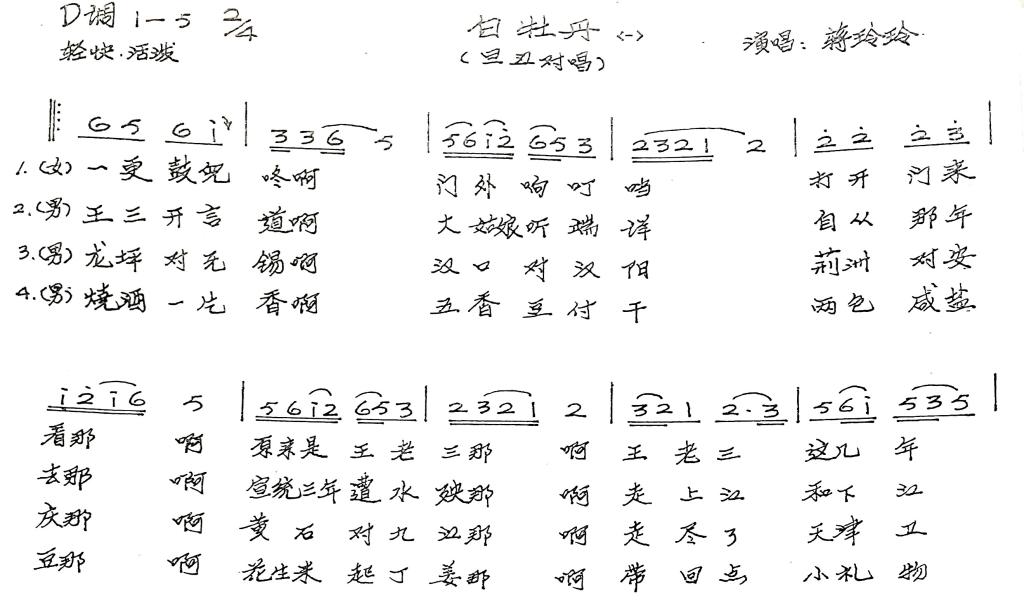 D调 i—5 2/4 白牡丹 <一> 演唱：蒋玲玲
轻快.活泼 (旦丑对唱)
6 5 6 i | 3 3 6 5 | 5 6 i 2̇ 6 5 3 | 2 3 2 1 2 | 2̇ 2̇ 2̇ 3̇ |
1.(女) 一更鼓児 咚啊 门外响叮 噹 打开 门来
2.(男) 王三开言 道啊 大姑娘听端 详 自从 那年
3.(男) 龙坪对无 锡啊 汉口对汉 阳 荊洲 对安
4.(男) 燒酒一片 香啊 五香豆付 干 两包 咸盐
i 2̇ i 6 5 | 5 6 i 2̇ 6 5 3 | 2 3 2 1 2 | 3 2 1 2·3 | 5 6 i 5 3 5 |
看那 啊 原来是王老 三那 啊 王老三 这几年
去那 啊 宣统三年遭水 殃那 啊 走上江 和下江
庆那 啊 黄石对九 江那 啊 走尽了 天津卫
豆那 啊 花生米起丁 姜那 啊 带回点 小礼物